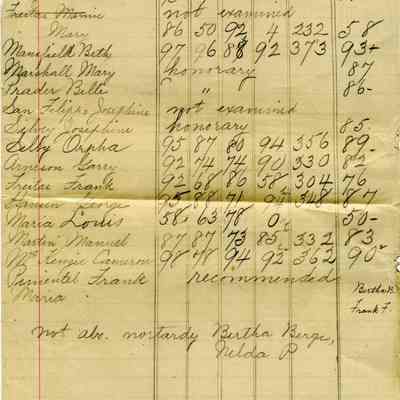 Freitas Mamie not examined
Mary 86 50 92 4 232 58
Mansfield Beth 97 96 88 92 373 93+
Marshall Mary honorary 87
Prader Belle " 86-
San Filippo Josephine not examined
Silvey Josephine honorary 85
Selby Orpha 95 87 80 94 356 89-
Arneson Garry 92 74 74 90 330 82
Freitas Frank 92 68 86 58 304 76
George 95 88 71 94 348 87
Maria Louis 58 63 78 0 50-
Martin Manuel 87 87 73 85 332 83
McKenzie Cameron 98 78 94 92 362 90
Pimentel Frank recommended
Maria
Bertha B.
Frank F.
not abs. nor tardy Bertha Berge,
Nelda P